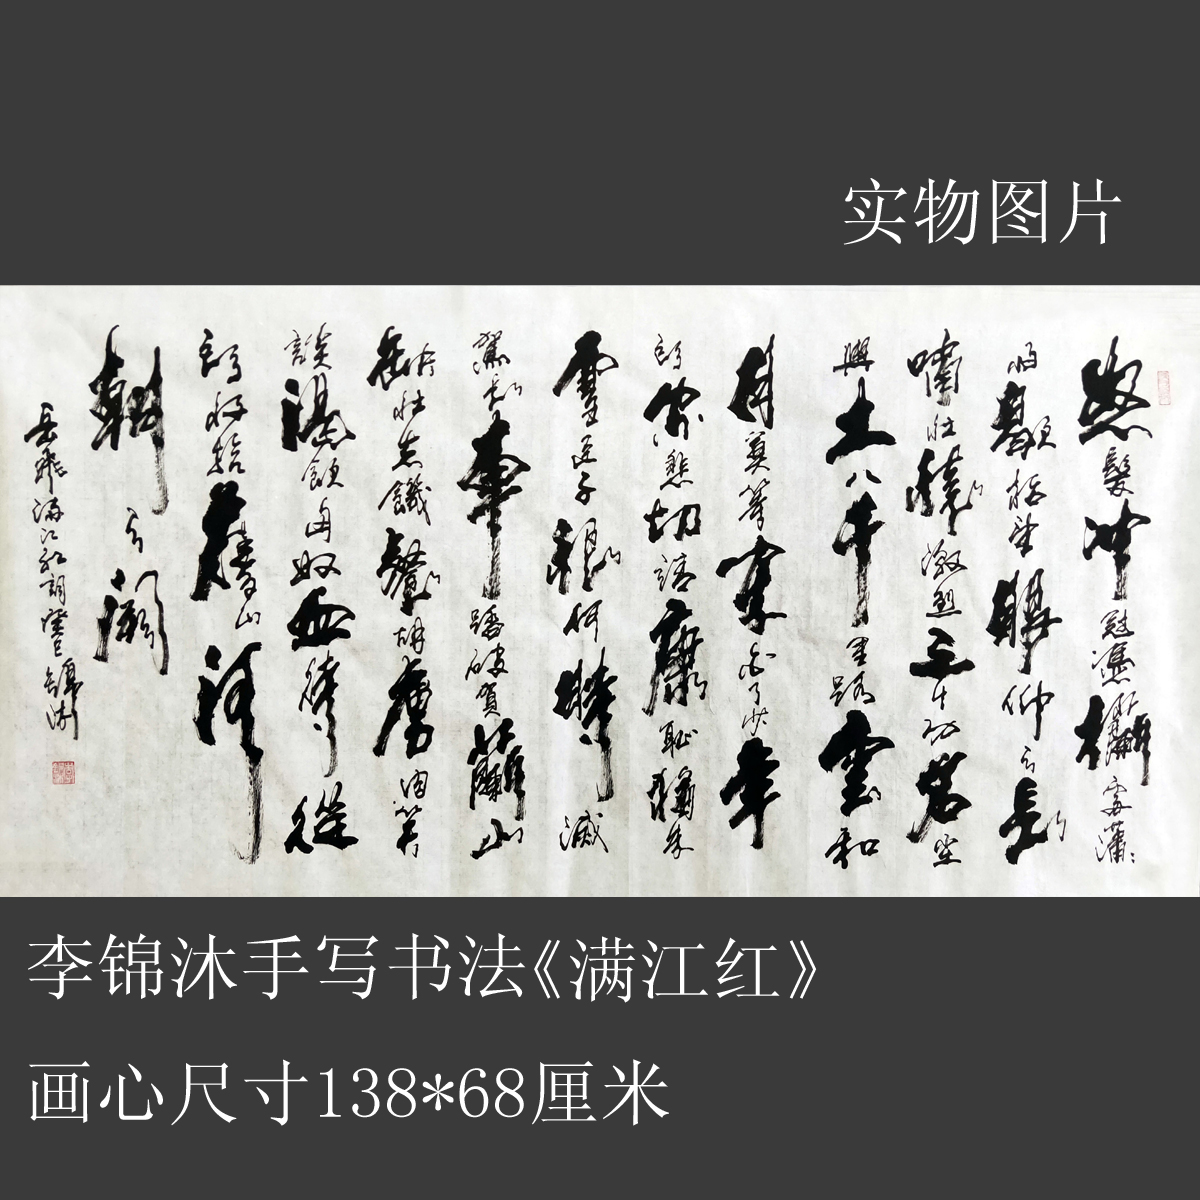 实物图片
怒髮冲冠憑欄處瀟〻
雨歇抬望眼仰天長
嘯壯懷激烈三十功名塵
與土八千里路雲和
月莫等閑白了少年
頭空悲切靖康恥猶未
雪臣子恨何時滅
駕長車踏破賀蘭山
缺壯志饑餐胡虜肉笑
談渴飲匈奴血待從
頭收拾舊山河
朝天闕
岳飛滿江紅詞
李锦沐手写书法《满江红》
画心尺寸138*68厘米